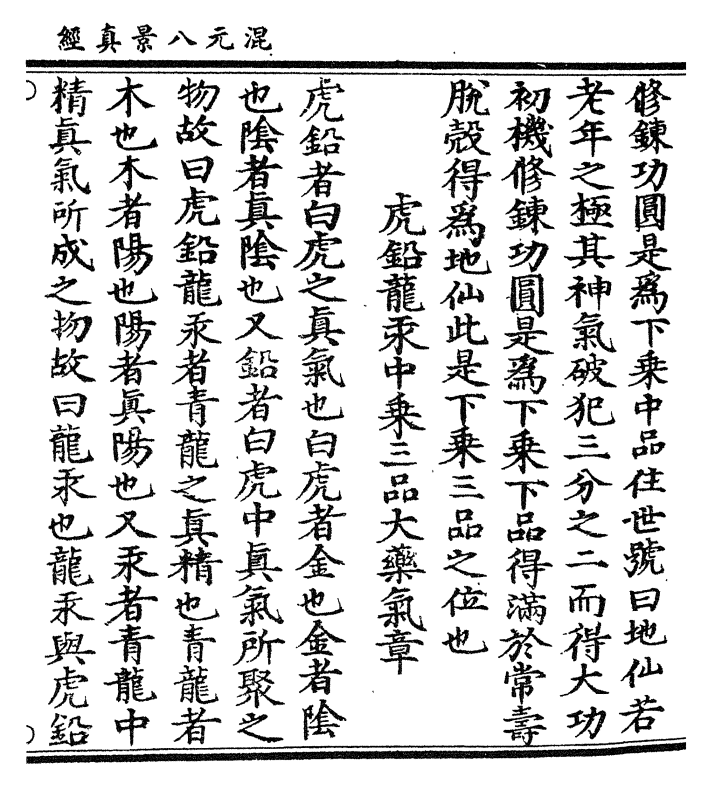 混元八景真經
修鍊功圓是爲下乘中品住世號曰地仙若
老年之極其神氣破犯三分之二而得大功
初機修鍊功圓是爲下乘下品得滿於常壽
脫殼得爲地仙此是下乘三品之位也
虎鉛龍汞中乘三品大藥氣章
虎鉛者白虎之真氣也白虎者金也金者陰
也陰者真陰也又鉛者白虎中真氣所聚之
物故曰虎鉛龍汞者青龍之真精也青龍者
木也木者陽也陽者真陽也又汞者青龍中
精真氣所成之物故曰龍汞也龍汞與虎鉛